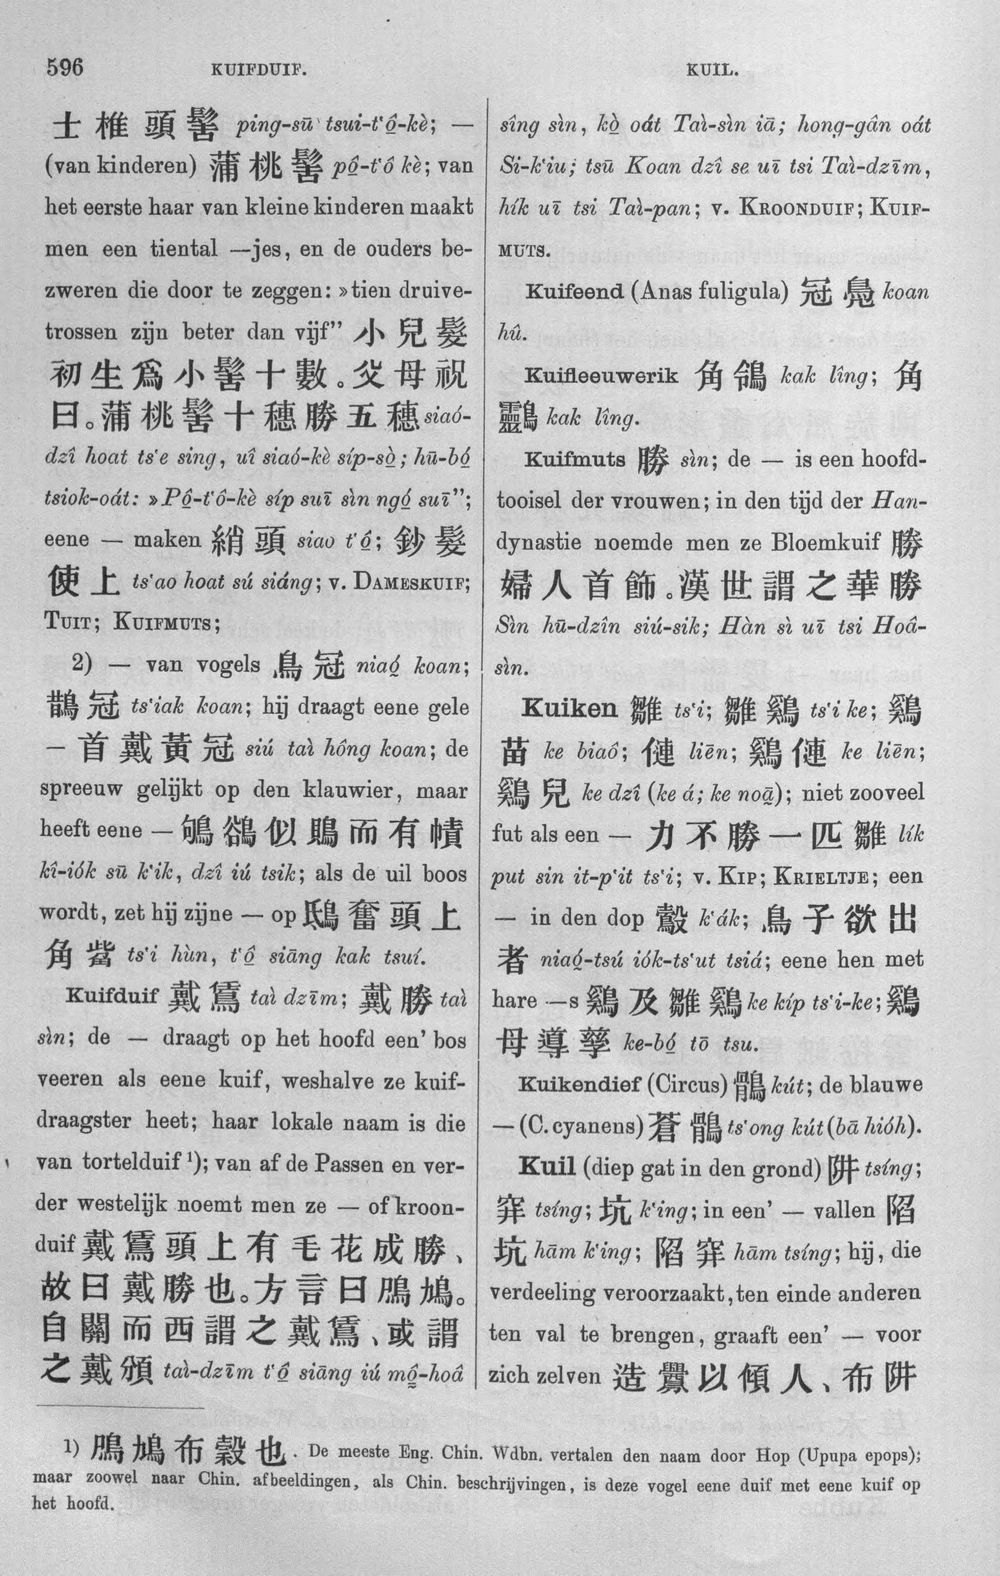 596
KUIFDUIF.
KUIL.
士椎頭髻 ping-sū tsui-t'ô̤-kè; —
(van kinderen) 蒲桃髻 pô̤-t'ô kè; van
het eerste haar van kleine kinderen maakt
men een tiental —jes, en de ouders be-
zweren die door te zeggen: »tien druive-
trossen zijn beter dan vijf” 小兒髮
初生爲小髻十數。父母祝
曰。蒲桃髻十穗勝五穗 siaó-
dzî hoat ts'e sing, uî siaó-kè síp-sò̤; hū-bó̤
tsiok-oát: »Pô̤-t'ô-kè síp suī sìn ngó̤ suī”;
eene — maken 綃頭 siao t'ô̤; 鈔髮
使上 ts'ao hoat sú siáng; v. DAMESKUIF;
TUIT; KUIFMUTS;
2) — van vogels 鳥冠 niaó̤ koan;
鵲冠 ts'iak koan; hij draagt eene gele
— 首戴黃冠 siú taì hông koan; de
spreeuw gelijkt op den klauwier, maar
heeft eene — 鴝鵒似鵙而有幘
kî-iók sū k'ik, dzî iú tsik; als de uil boos
wordt, zet hij zijne — op 鴟奮頭上
角觜 ts'i hùn, t'ô̤ siāng kak tsuí.
Kuifduif 戴鵀 taì dzīm; 戴勝 taì
sìn; de — draagt op het hoofd een’ bos
veeren als eene kuif, weshalve ze kuif-
draagster heet; haar lokale naam is die
van tortelduif ¹); van af de Passen en ver-
der westelijk noemt men ze — of kroon-
duif 戴鵀頭上有毛花成勝、
故曰戴勝也。方言曰鳲鳩。
自關而西謂之戴鵀、或謂
之戴頒 taì-dzīm t'ô̤ siāng iú mô̤-hoâ
sîng sìn, kò̤ oát Taì-sìn iā; hong-gân oát
Si-k'iu; tsū Koan dzî se uī tsi Taì-dzīm,
hík uī tsi Taì-pan; v. KROONDUIF; KUIF-
MUTS.
Kuifeend (Anas fuligula) 冠鳧 koan
hû.
Kuifleeuwerik 角鴒 kak lîng; 角
鸖 kak lîng.
Kuifmuts 勝 sìn; de — is een hoofd-
tooisel der vrouwen; in den tijd der Han-
dynastie noemde men ze Bloemkuif 勝
婦人首飾。漢世謂之華勝
Sìn hū-dzîn siú-sik; Hàn sì uī tsi Hoâ-
sìn.
Kuiken 雛 ts'i; 雛鷄 ts'i ke; 鷄
苗 ke biaô; 僆 liēn; 鷄僆 ke liēn;
鷄兒 ke dzî (ke á; ke noā̤); niet zooveel
fut als een — 力不勝一匹雛 lík
put sin it-p'it ts'i; v. KIP; KRIELTJE; een
— in den dop 鷇 k'ák; 鳥子欲出
者 niaó̤-tsú iók-ts'ut tsiá; eene hen met
hare —s 鷄及雛鷄 ke kíp ts'i-ke; 鷄
母導孳 ke-bó̤ tō tsu.
Kuikendief (Circus) 鶻 kút; de blauwe
— (C. cyanens) 蒼鶻 ts'ong kút (bā hióh).
Kuil (diep gat in den grond) 阱 tsíng;
穽 tsíng; 坑 k'ing; in een’ — vallen 陷
坑 hām k'ing; 陷穽 hām tsíng; hij, die
verdeeling veroorzaakt, ten einde anderen
ten val te brengen, graaft een’ — voor
zich zelven 造釁以傾人、布阱
1) 鳲鳩布穀也. De meeste Eng. Chin. Wdbn. vertalen den naam door Hop (Upupa epops);
maar zoowel naar Chin. afbeeldingen, als Chin. beschrijvingen, is deze vogel eene duif met eene kuif op
het hoofd.